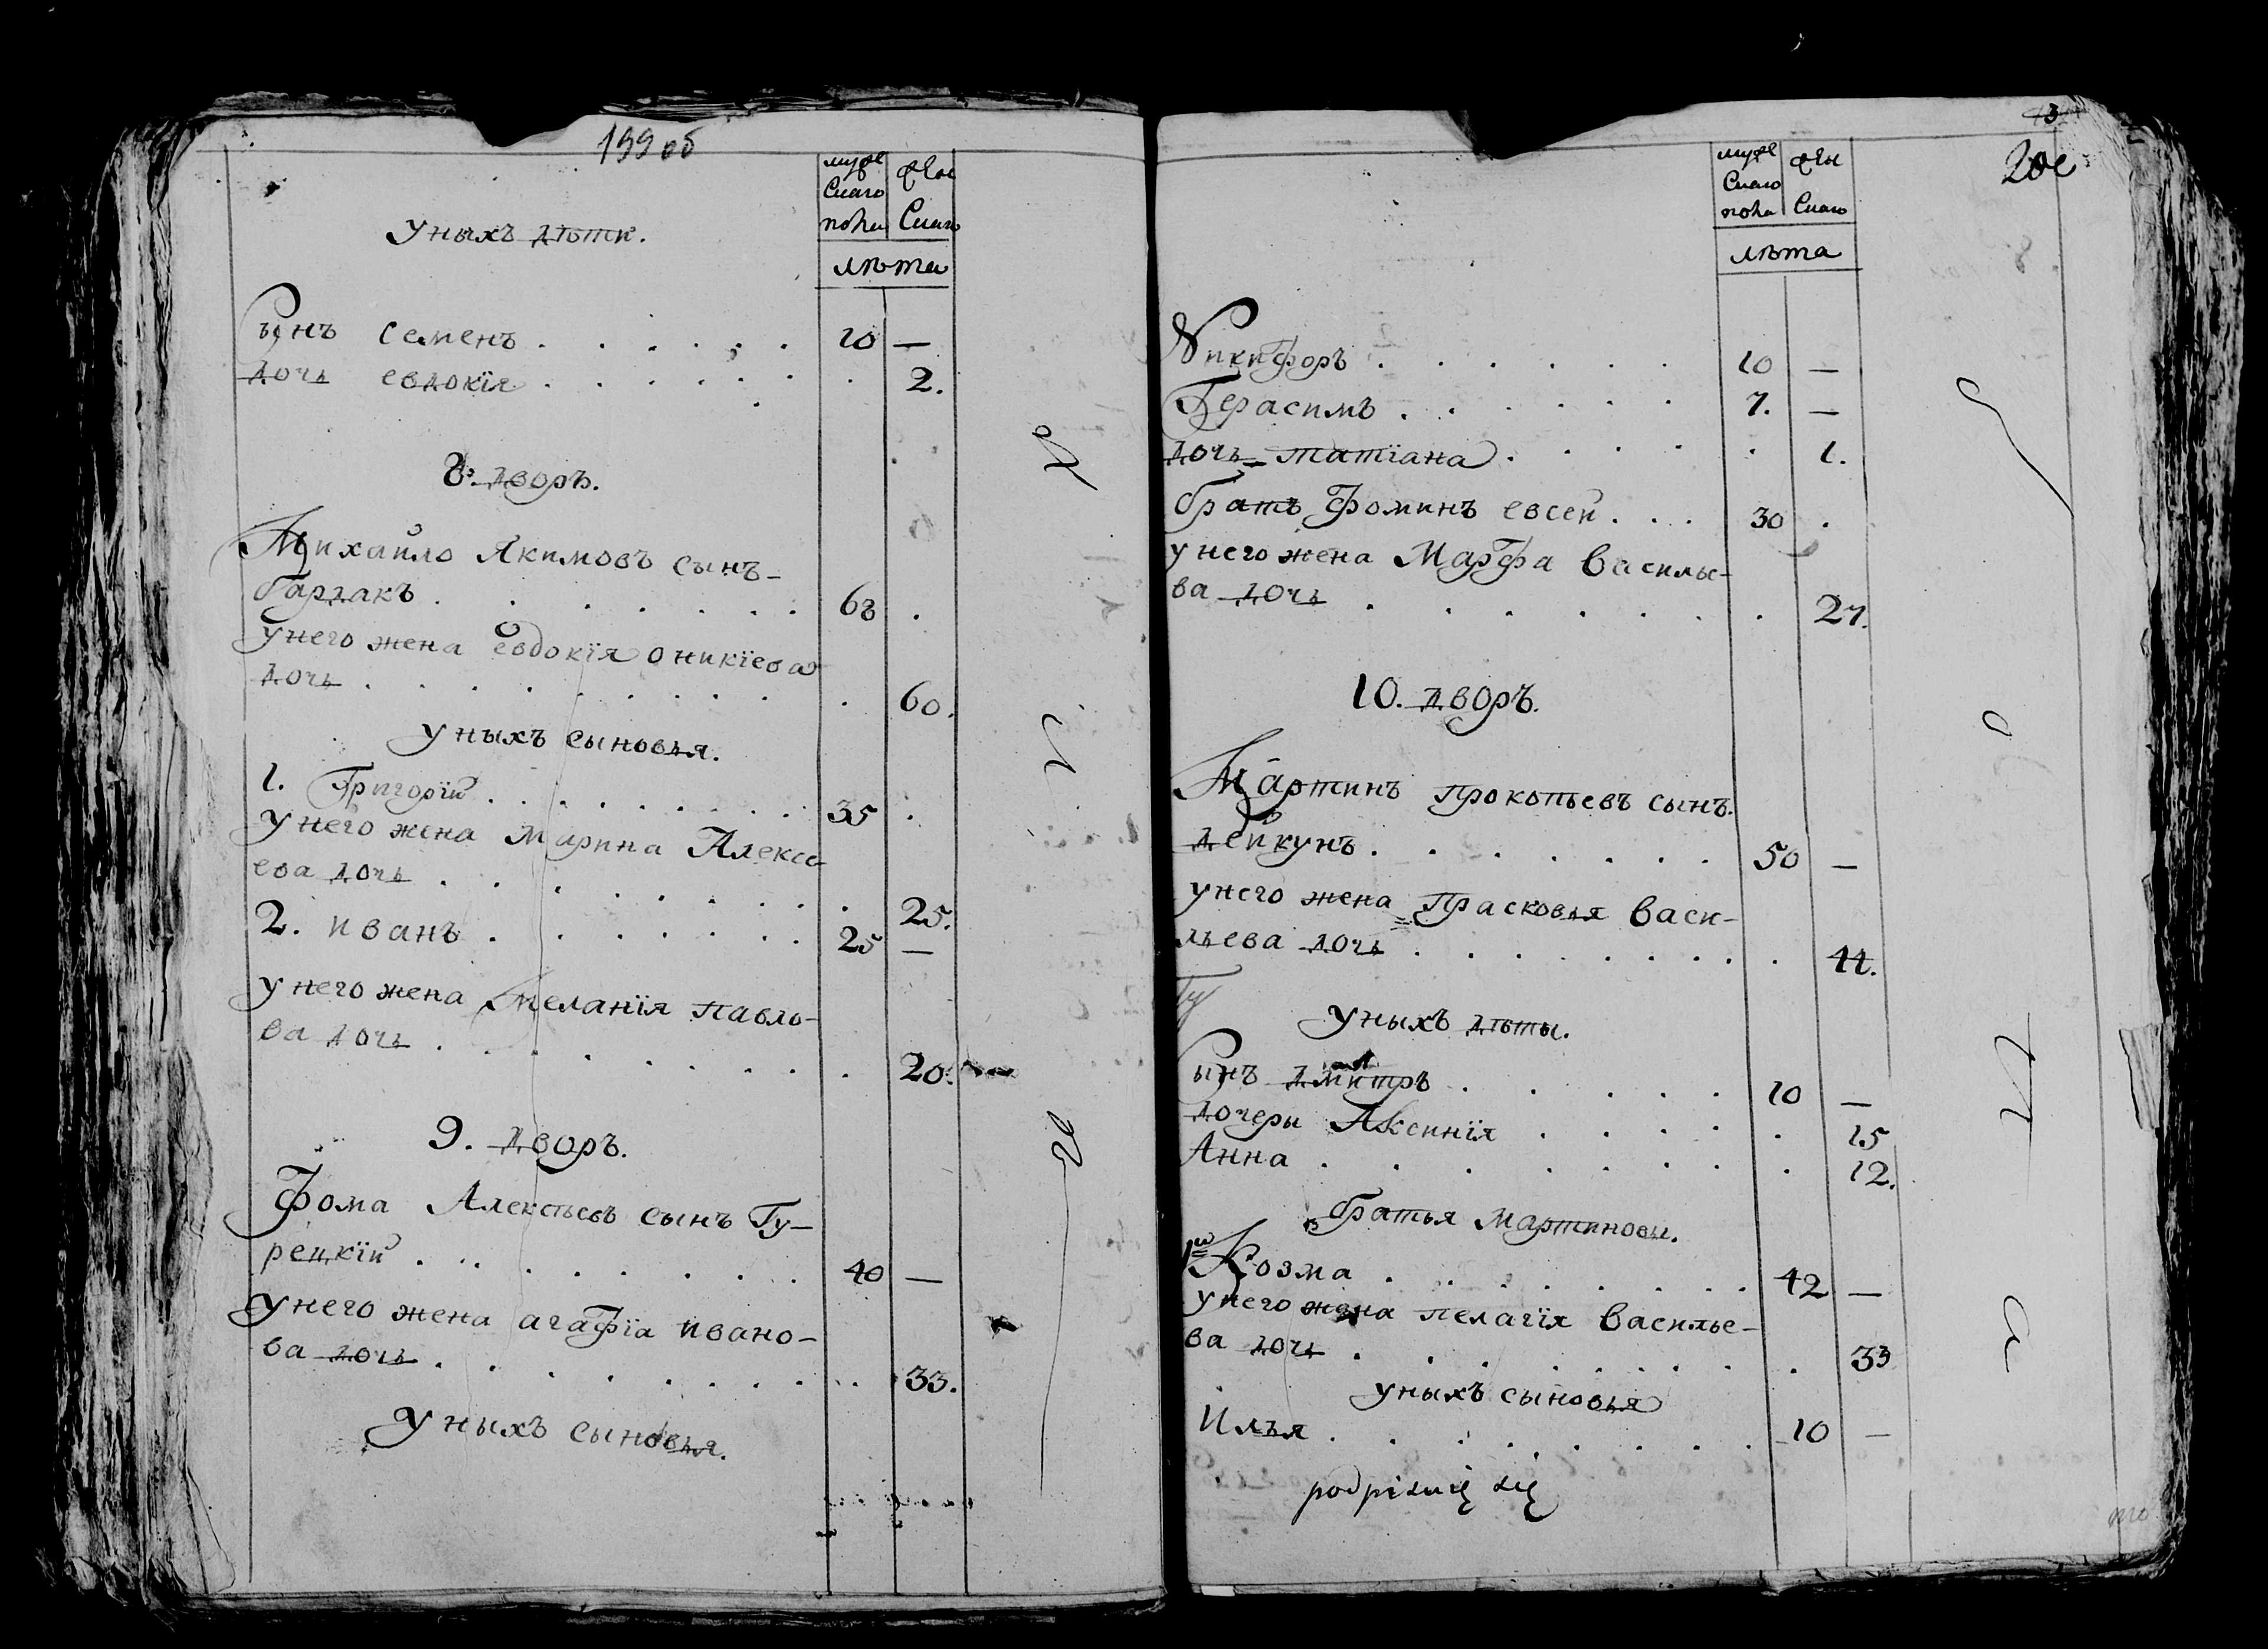 199 об
муже
скаго
пола
жен
скаго
лѣта
У ныхъ дѣти.
Сынъ Семенъ . . . . . . 10 —
дочь евдокїя . . . . . . . 2.
8. дворъ.
Михайло Якимовъ сынъ-
Гардакъ . . . . . . . 68 .
у него жена евдокїя оникїева
дочь . . . . . . . . . 60.
У ныхъ сыновья.
1. Григорїй . . . . . . . 35 .
у него жена Марина Алексе
ева дочь . . . . . . . . 25.
2. иванъ . . . . . . 25 —
у него жена Меланїя павло-
ва дочь . . . . . . . . 20.
9. дворъ.
Фома Алексѣевъ сынъ Гу-
рецкїй . . . . . . . . 40 —
у него жена агафїа ивано-
ва дочь . . . . . . . . 33.
У ныхъ сыновья.
13
200
муже
скаго
пола
жен
скаго
лѣта
Никифоръ . . . . . 10 —
Герасимъ . . . . . . 7. —
дочь татїана . . . . . 1.
братъ Фоминъ евсей . . . 30 .
у него жена Марфа Василье-
ва дочь . . . . . . . 27.
10. дворъ.
Мартинъ прокопьевъ сынъ.
дейкунъ . . . . . . . 50 —
у него жена Прасковья Васи-
льева дочь . . . . . . . . 44.
Гу
У ныхъ дѣты.
Сынъ Дмитръ . . . . . 10 —
дочеры Аксинїя . . . . . 15
Анна . . . . . . . . 12.
братья Мартиновы.
Козма . . . . . . . . 42 —
у него жена пелагїя Василье-
ва дочь . . . . . . . . 33
У ныхъ сыновья
Илья . . . . . . . . 10 —